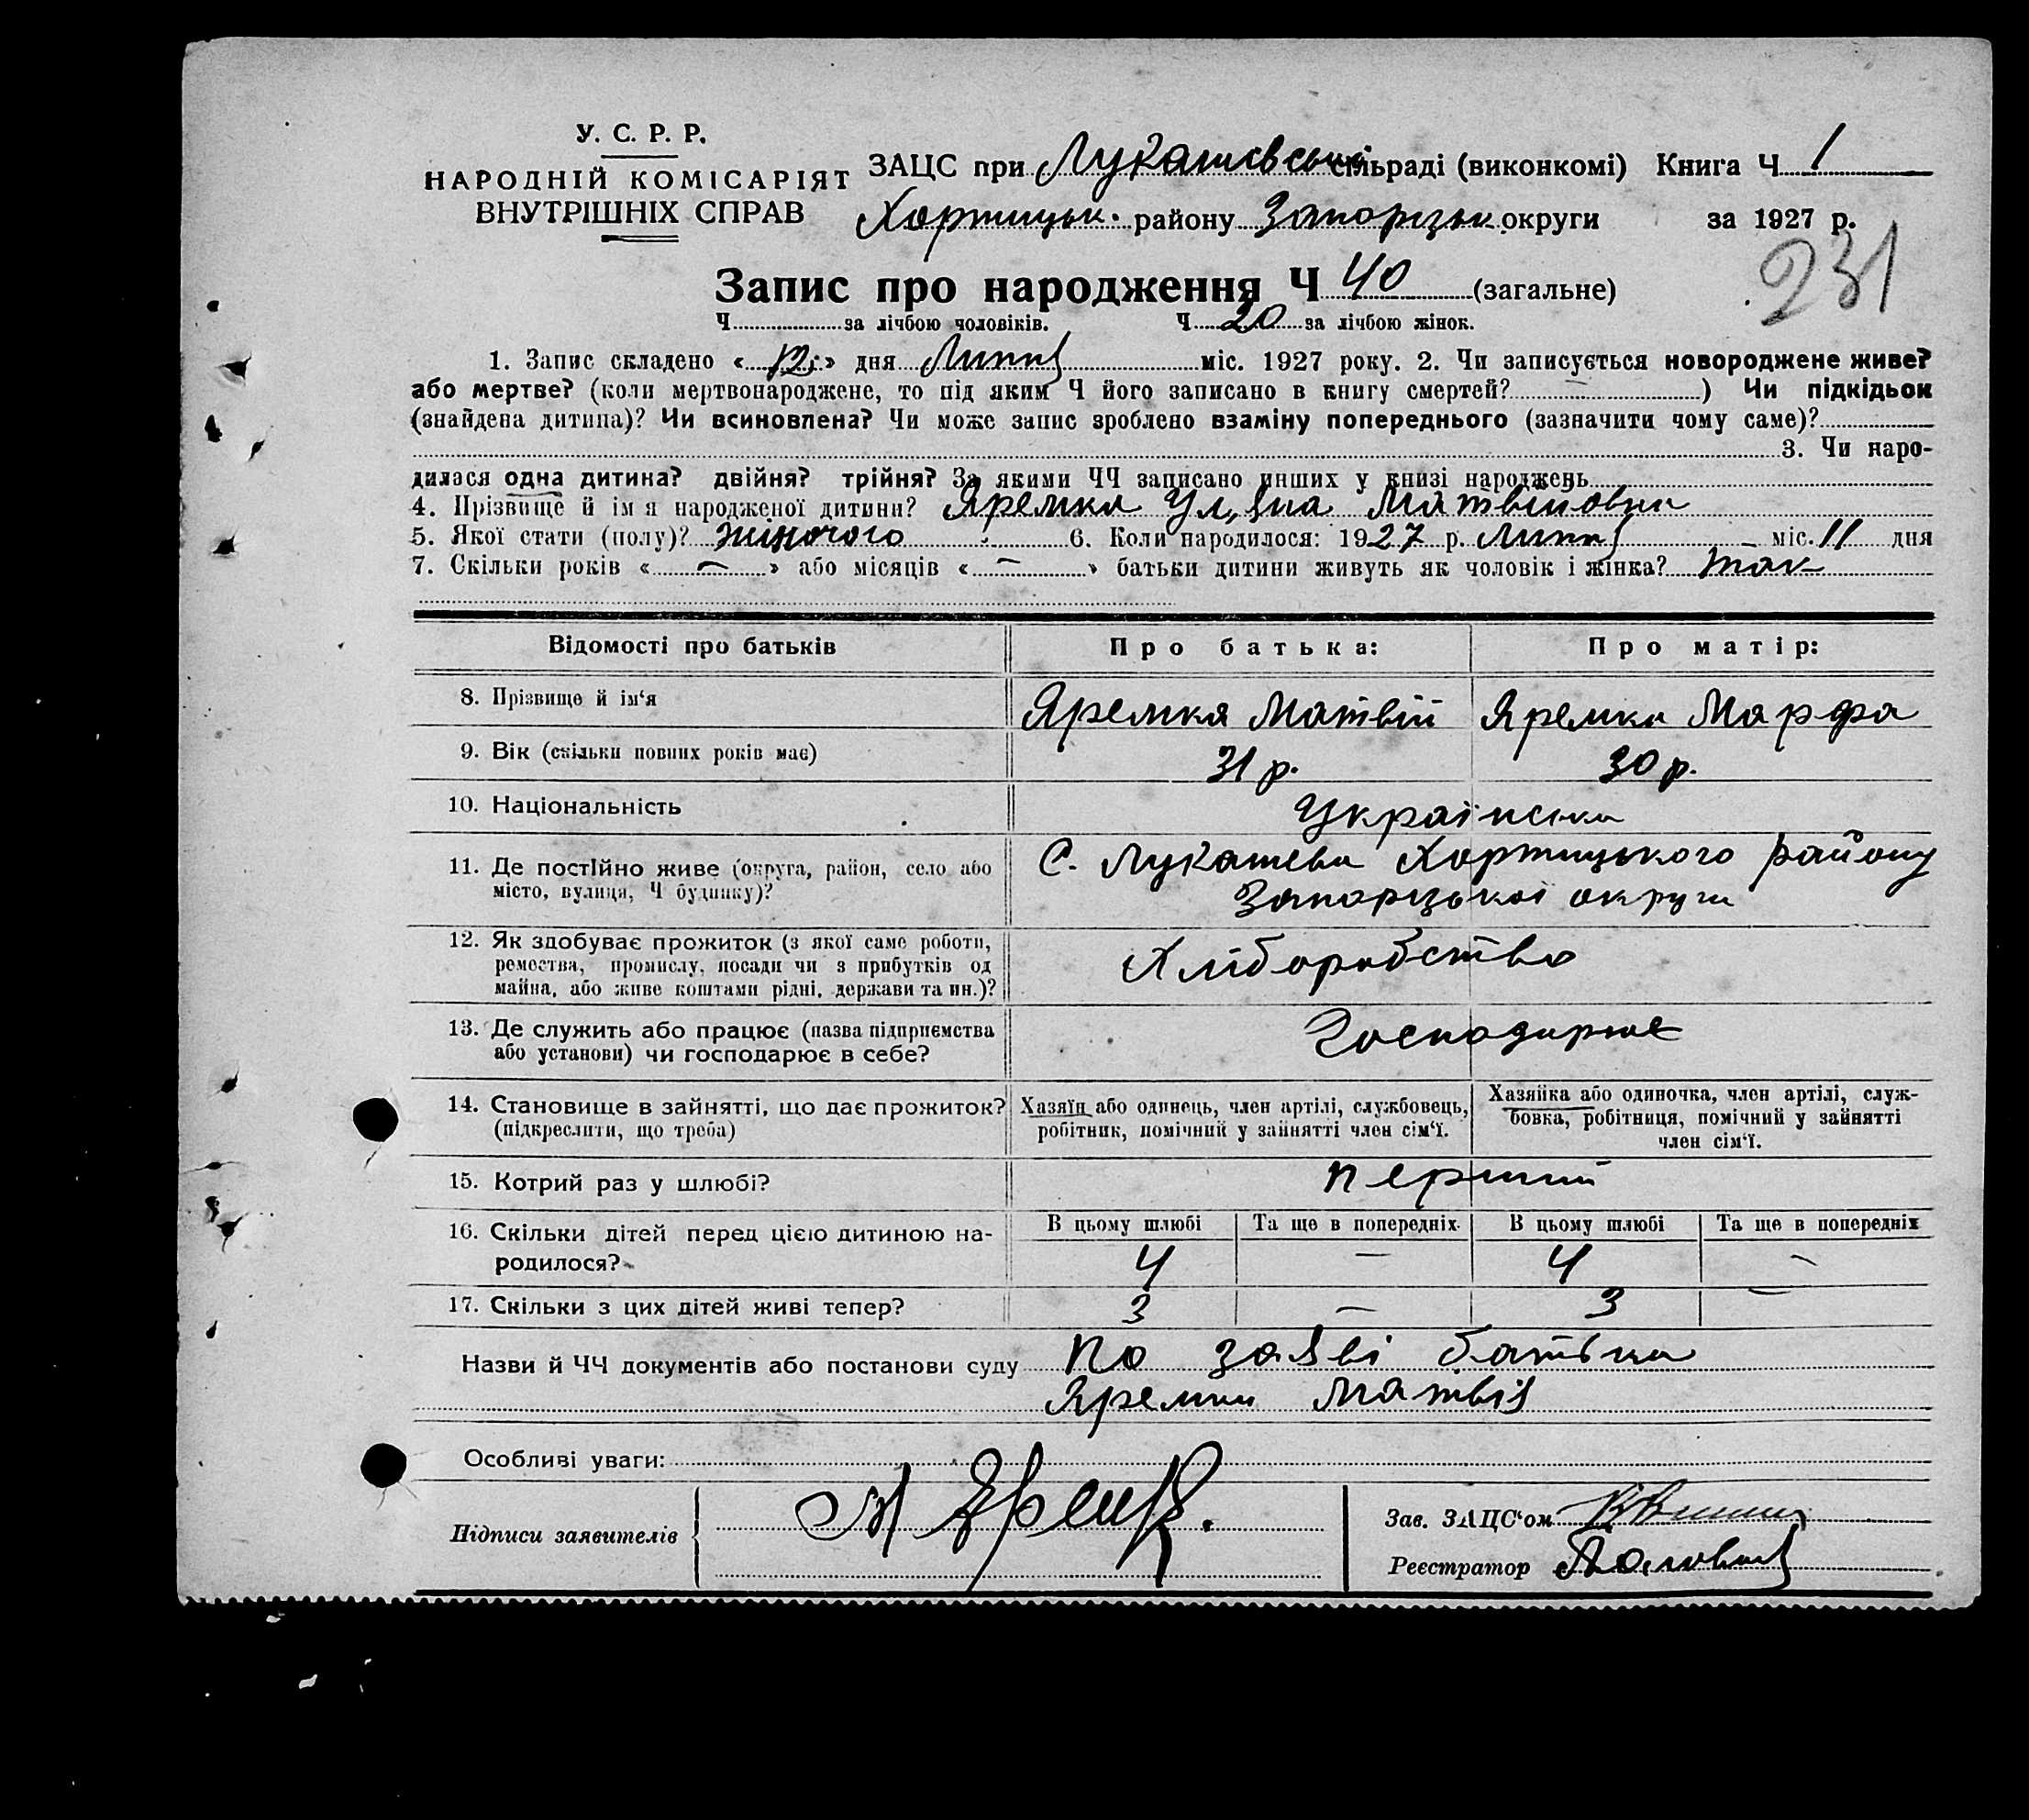 У. С. Р. Р.
НАРОДНІЙ КОМІСАРІЯТ
ВНУТРІШНІХ СПРАВ
ЗАЦС при Лукашівській сільраді (виконкомі) Книга Ч 1
Хортицьк. району Запорізьк. округи за 1927 р.
231
Запис про народження Ч 40 (загальне)
Ч за лічбою чоловіків. Ч 20 за лічбою жінок.
1. Запис складено «12» дня Липня міс. 1927 року. 2. Чи записується новороджене живе?
або мертве? (коли мертвонароджене, то під яким Ч його записано в книгу смертей? —) Чи підкідьок
(знайдена дитина)? Чи всиновлена? Чи може запис зроблено взаміну попереднього (зазначити чому саме)?
3. Чи наро-
дилася одна дитина? двійня? трійня? За якими ЧЧ записано инших у книзі народжень
4. Прізвище й ім я народженої дитини? Яремка Уляна Матвіиовна
5. Якої стати (полу)? жіночого 6. Коли народилося: 1927 р. Липня міс. 11 дня
7. Скільки років « — » або місяців « — » батьки дитини живуть як чоловік і жінка? так
Відомості про батьків Про батька: Про матір:
8. Прізвище й ім‘я Яремка Матвій Яремка Марфа
9. Вік (скільки повних років має) 31 р. 30 р.
10. Національність Українська
11. Де постійно живе (округа, район, село або
місто, вулиця, Ч будинку)?
С. Лукашева Хортицького району
Запорізької округи
12. Як здобуває прожиток (з якої саме роботи,
ремества, промислу, посади чи з прибутків од
майна, або живе коштами рідні, держави та ин.)?
Хліборобство
13. Де служить або працює (назва підприємства
або установи) чи господарює в себе?
Господарює
14. Становище в зайнятті, що дає прожиток?
(підкреслити, що треба)
Хазяїн або одинець, член артілі, службовець,
робітник, помічний у зайнятті член сім‘ї.
Хазяйка або одиночка, член артілі, служ-
бовка, робітниця, помічний у зайнятті
член сім‘ї.
15. Котрий раз у шлюбі? перший
16. Скільки дітей перед цією дитиною на-
родилося?
В цьому шлюбі Та ще в попередніх В цьому шлюбі Та ще в попередніх
4 — 4 —
17. Скільки з цих дітей живі тепер? 3 — 3 —
Назви й ЧЧ документів або постанови суду По заяві батька
Яремки Матвія
Особливі уваги:
Підписи заявителів М Яремк.
Зав. ЗАЦС‘ом
Реєстратор